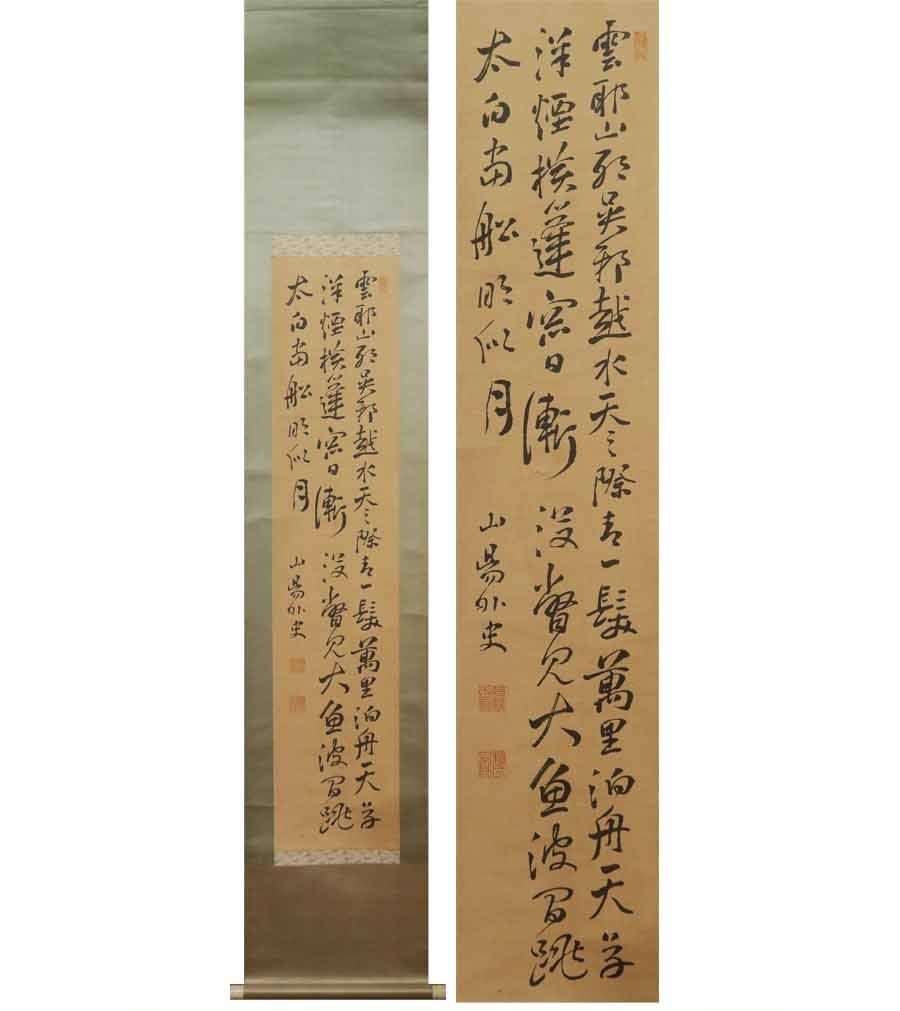 雲耶山耶吳耶越水天之際青一髮萬里泊舟天草
洋煙橫篷窓日漸没瞥見大魚波間跳
太白當船明似月
山陽外史
雲耶山耶吳耶越水天之際青一髮萬里泊舟天草
洋煙橫篷窓日漸没瞥見大魚波間跳
太白當船明似月
山陽外史